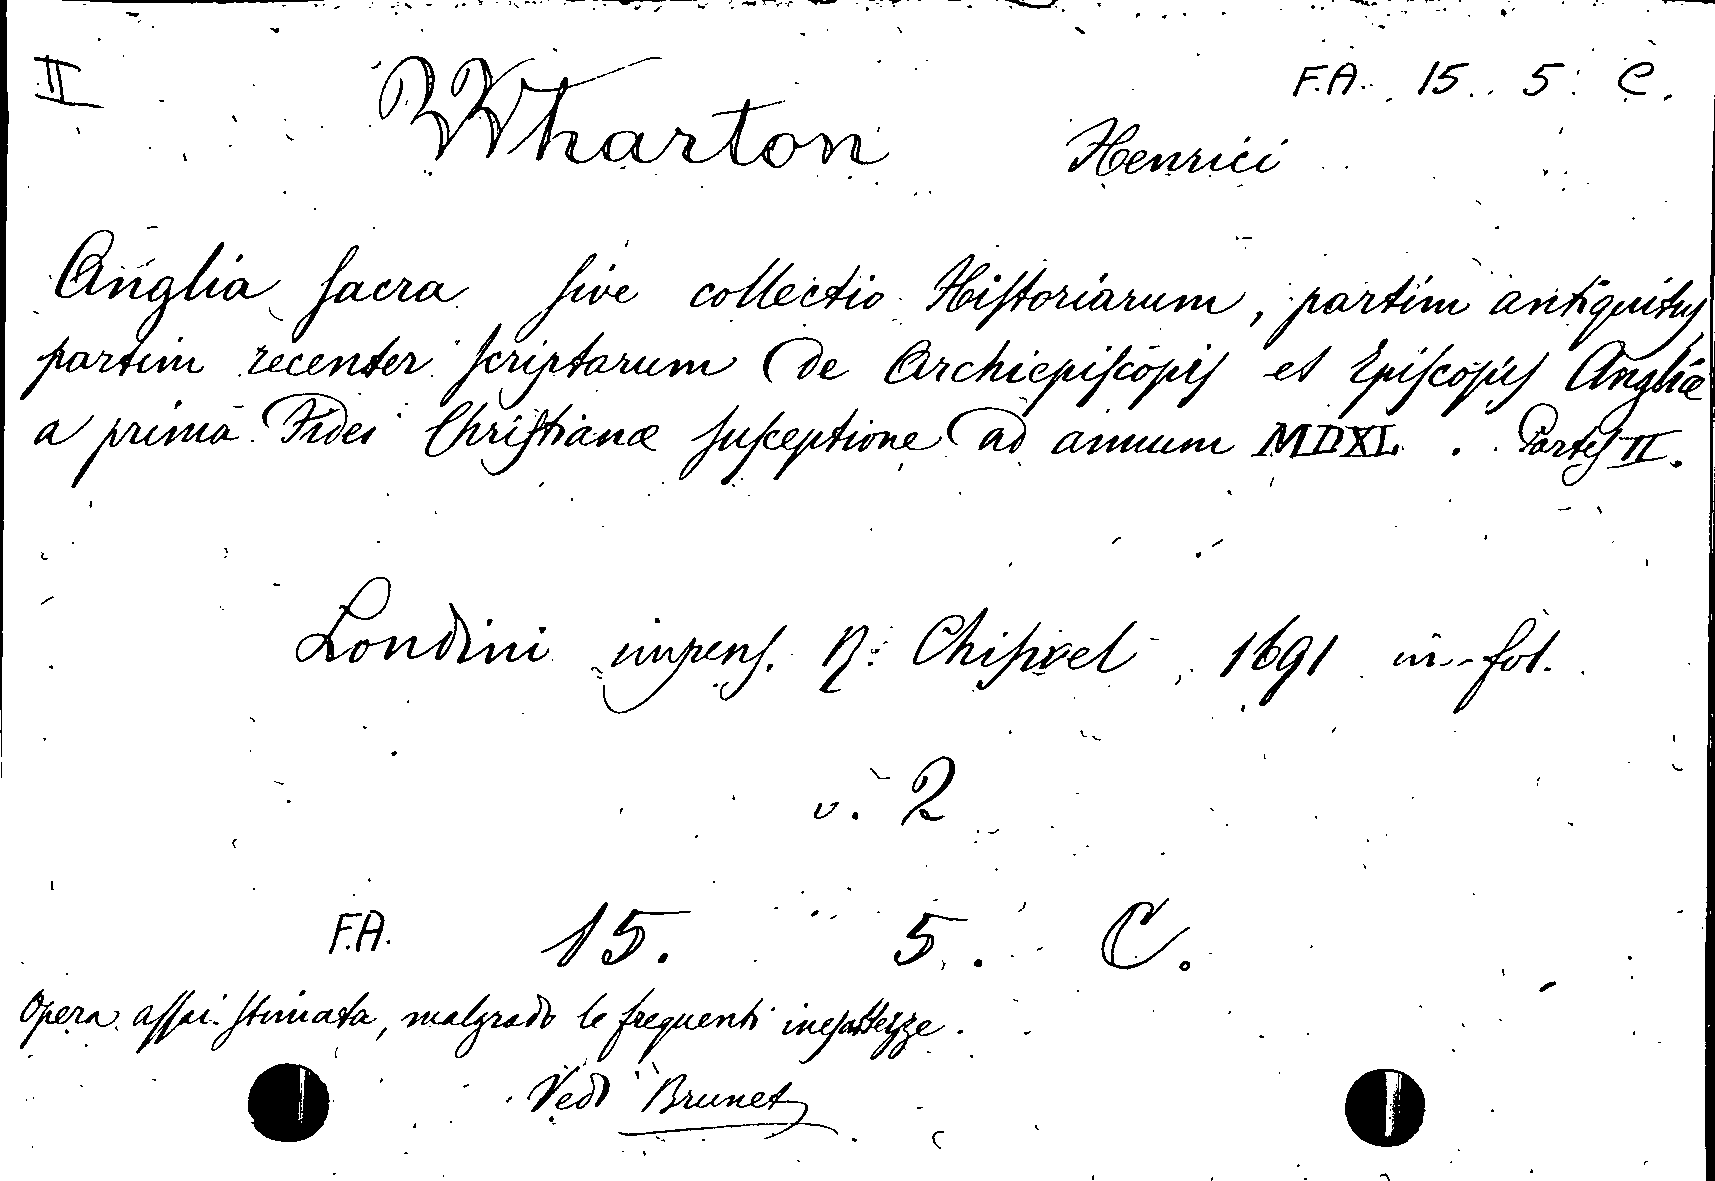 II F.A. 15. 5. C.
Wharton Henrici
Anglia sacra sive collectio Historiarum, partim antiquitus
partim recenter scriptarum de Archiepiscopis et Episcopis Angliæ
a prima Fidei Christianæ susceptione ad annum MDXL. Partes II.
Londini impens. R. Chiswel, 1691 in-fol.
v. 2
F.A. 15. 5. C.
Opera assai stimata, malgrado le frequenti inesattezze.
Vedi Brunet